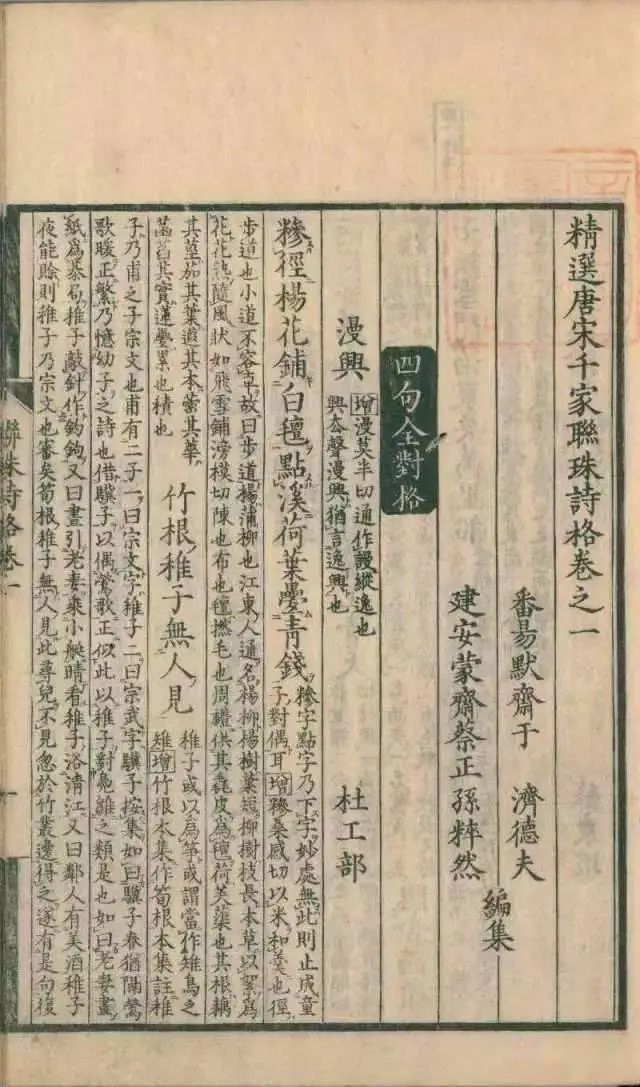 精選唐宋千家聯珠詩格卷之一
番易默齋于濟德夫
建安蒙齋蔡正孫粹然
編集
四句全對格
漫興
增漫莫半切通作謾縱逸也
興去聲漫興猶言逸興也
杜工部
糝徑楊花鋪白氊點溪荷葉疊青錢
糝字點字乃下字妙處無此則止成童
子對偶耳增糝桑感切以米和羹也徑
步道也小道不容車故曰步道楊蒲柳也江東人通名楊柳楊樹葉短柳樹枝長本草以絮為
花花熟隨風狀如飛雪鋪滂模切陳也布也氊撚毛也周禮供其毳皮為氊荷芙蕖也其根藕
其莖茄其葉蕸其本蔤其華
菡萏其實蓮疊累也積也
竹根稚子無人見
稚子或以為筍或謂當作雉鳥之
雉增竹根本集作筍根本集註稚
子乃甫之子宗文也甫有二子一曰宗文字稚子二曰宗武字驥子按集如曰驥子春猶隔鶯
歌暖正繁乃憶幼子之詩也借驥子以偶鶯歌正似此以稚子對鳧雛之類是也如曰老妻畫
紙為棊局稚子敲針作鈎鈎又曰晝引老妻乘小艇晴看稚子浴清江又曰鄰人有美酒稚子
夜能賒則稚子乃宗文也審矣筍根稚子無人見此尋兒不見忽於竹叢邊得之遂有是句復
聯珠詩格卷一
一